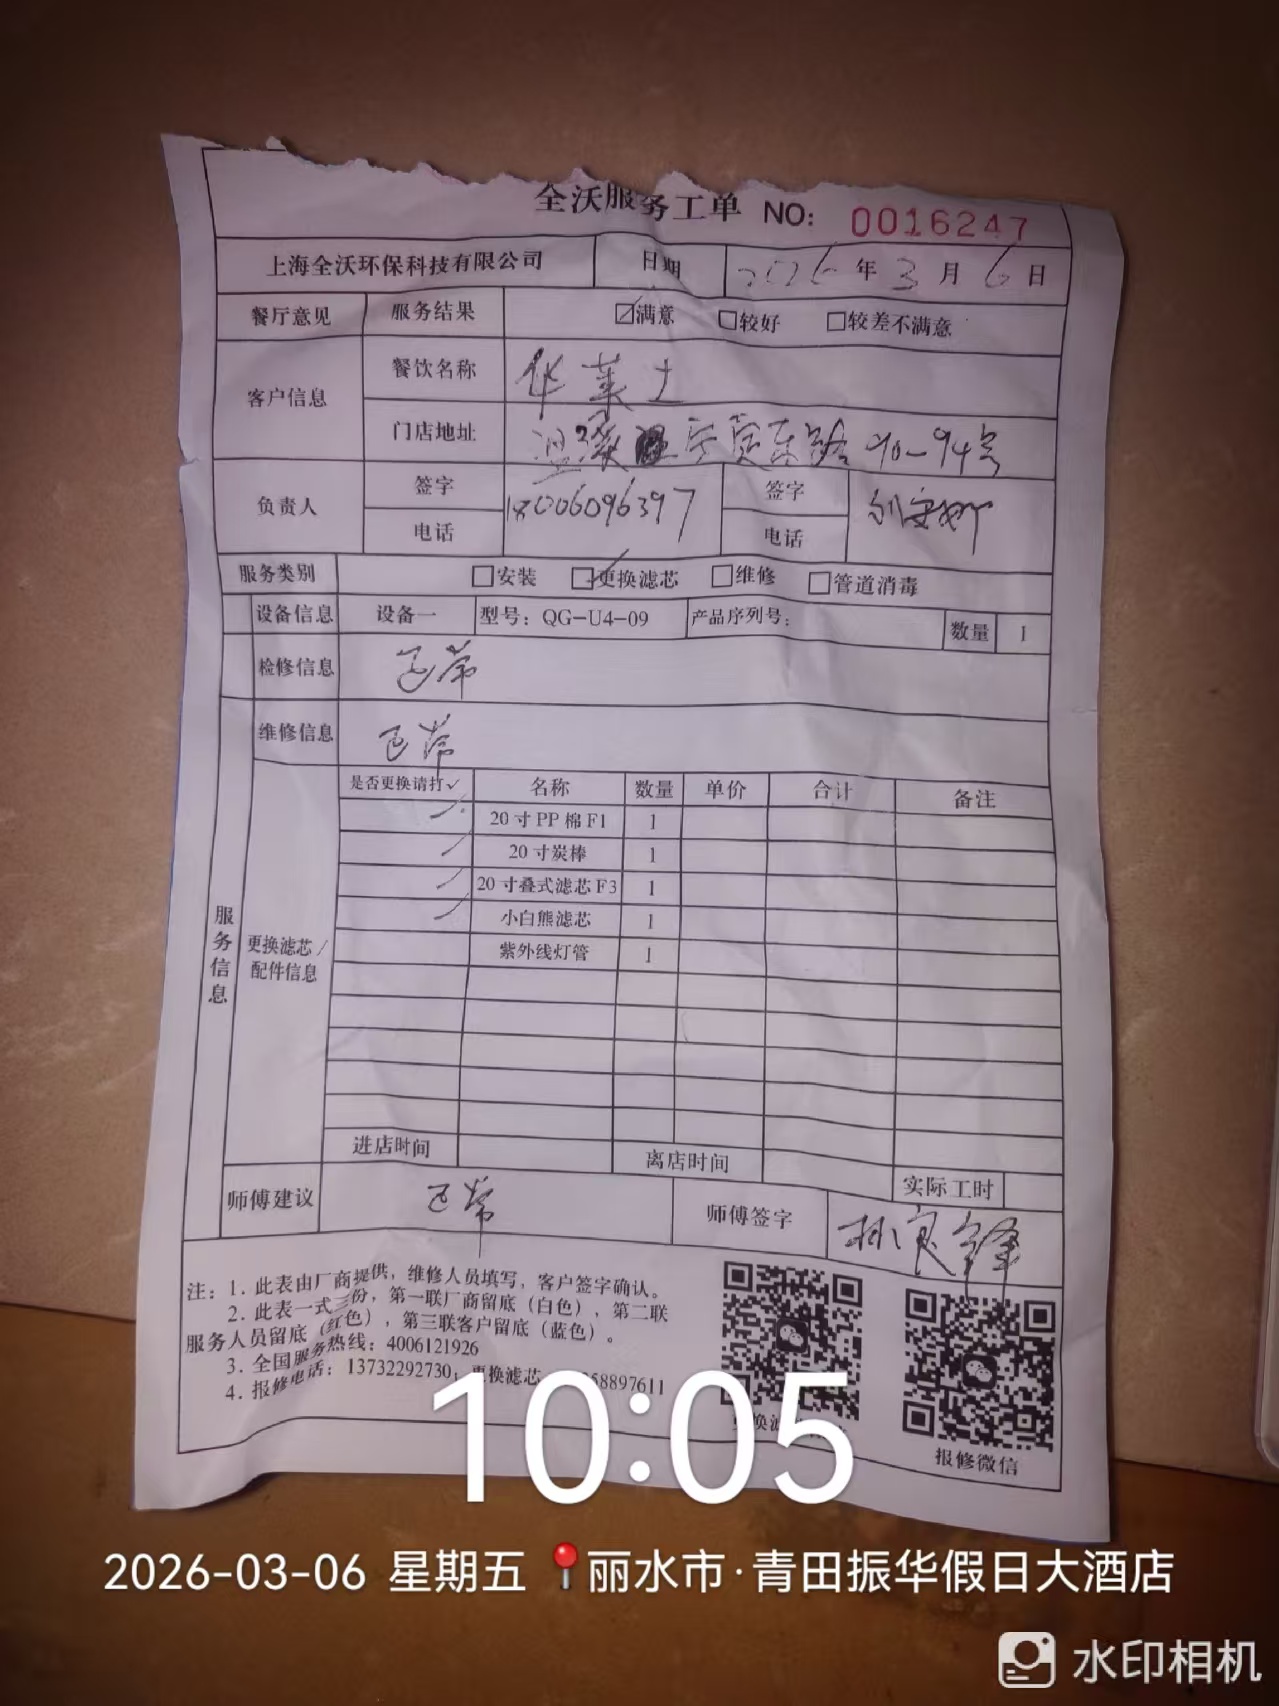 全沃服务工单 NO: 0016247
上海全沃环保科技有限公司 日期 2026年3月6日
餐厅意见 服务结果 ☑满意 □较好 □较差不满意
客户信息 餐饮名称 华莱士
门店地址 东路 90-94号
负责人 签字 电话 18006096397 签字 电话
服务类别 □安装 ☑更换滤芯 □维修 □管道消毒
设备信息 设备一 型号：QG-U4-09 产品序列号： 数量 1
检修信息 正常
维修信息 正常
服务信息
更换滤芯/配件信息
是否更换请打✓ 名称 数量 单价 合计 备注
✓ 20寸PP棉F1 1
✓ 20寸炭棒 1
✓ 20寸叠式滤芯F3 1
✓ 小白熊滤芯 1
紫外线灯管 1
进店时间 离店时间 实际工时
师傅建议 正常 师傅签字 林良锋
注：1. 此表由厂商提供，维修人员填写，客户签字确认。
2. 此表一式三份，第一联厂商留底（白色），第二联
服务人员留底（红色），第三联客户留底（蓝色）。
3. 全国服务热线：4006121926
4. 报修电话：13732292730；更换滤芯 58897611
报修微信
10:05
2026-03-06 星期五 丽水市·青田振华假日大酒店
水印相机